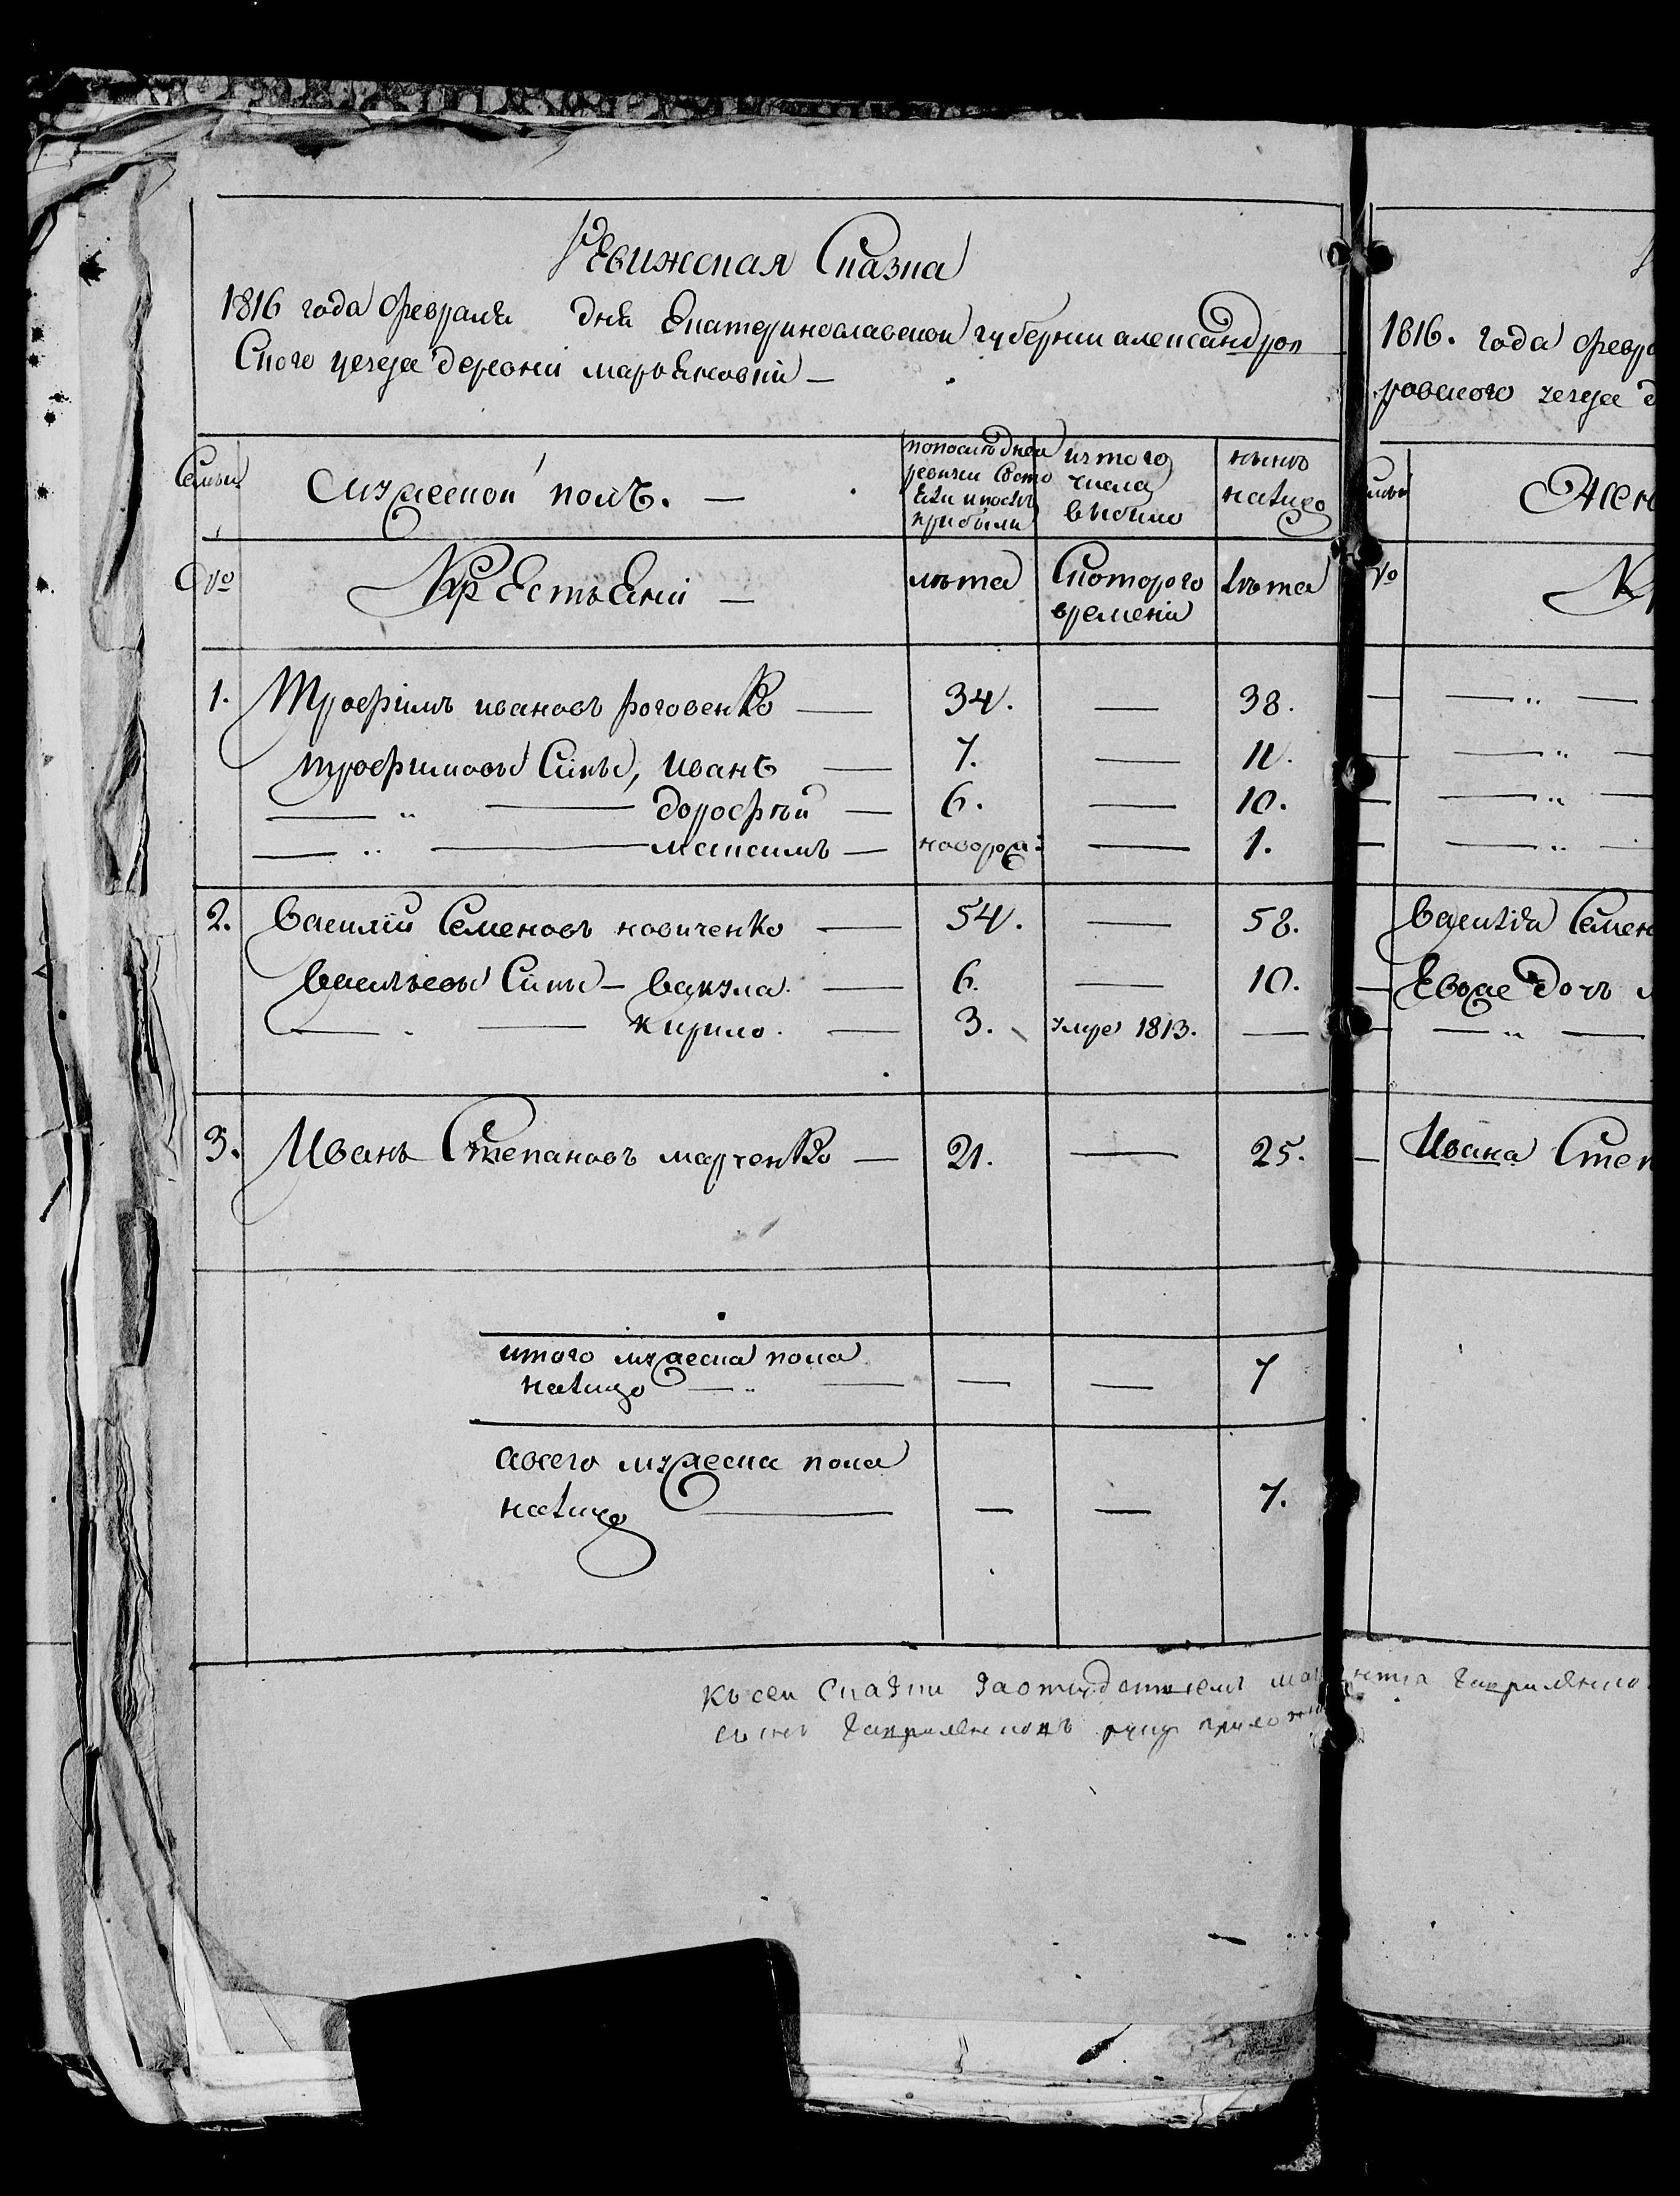 Ревижская Сказка
1816 года февраля дня Екатеринославской губернии александров
Скаго уезда деревни марьяновки —
Семьи
Мужеской полъ. —
попоследней
ревизии Состо
яли и после
прибыли
изтого
числа
выбыло
ныне
налицо
№
Крестьяни —
лета
Скоторого
времени
лета
1. Трофимъ ивановъ роговенко — 34. — 38.
трофимовы Сыны, иванъ — 7. — 11.
— " — дорофей — 6. — 10.
— " — максимъ — новорож: — 1.
2. Василий Семеновъ новиченко — 54. — 58.
васильевы Сыны — вакула. — 6. — 10.
— . — кирило. — 3. умре 1813. —
3. Иванъ Степановъ марченко — 21. — 25.
итого мужеска пола
налицо — " — — — 7
авсего мужеска пола
налицо — — — 7.
Къ сей Сказки
сынъ руку приложи
1816. года февр
ровского уезда д
Жен
№
Кр
— " —
— " —
— " —
— " —
Василия Семен
Ево дочь
— " —
Ивана Степ